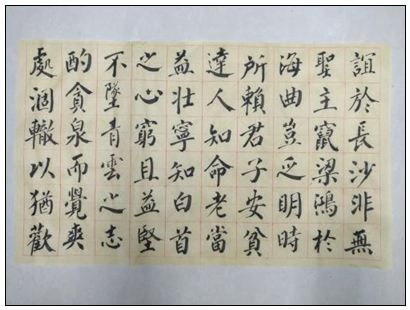 誼於長沙非無
聖主竄梁鴻於
海曲豈乏明時
所賴君子安貧
達人知命老當
益壯寧知白首
之心窮且益堅
不墜青雲之志
酌貪泉而覺爽
處涸轍以猶歡